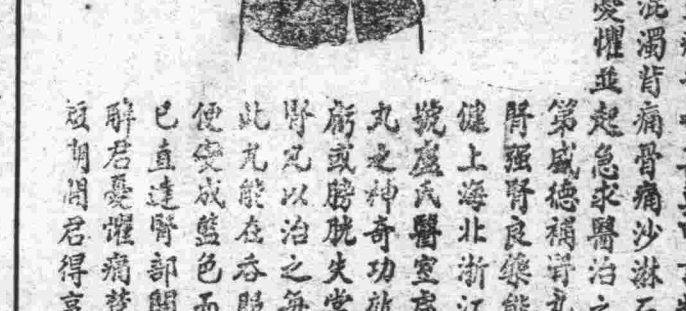 混濁背痛骨痛沙淋石
憂懼並起急求醫治之
第威德補腎丸
腎强腎良藥能
健上海北浙江
號盧氏醫室
丸之神奇功效
虧或膀胱失常
腎丸以治之每
此丸能在吞服
便變成藍色而
已直達腎部開
解君憂懼痛楚
短期間君得享